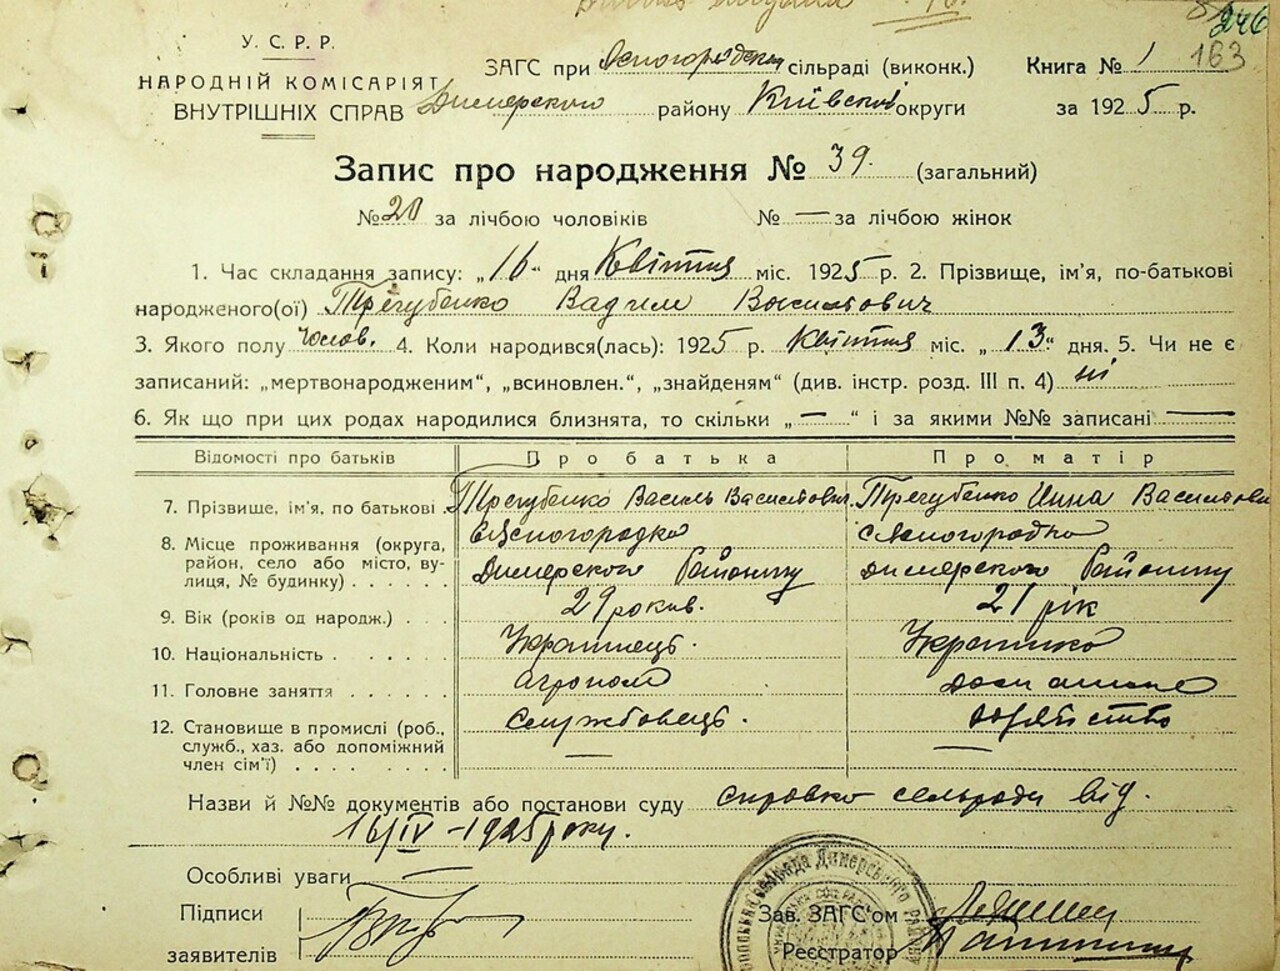 246
163
У. С. Р. Р.
НАРОДНІЙ КОМІСАРІЯТ
ВНУТРІШНІХ СПРАВ
ЗАГС при Ясногородськ сільраді (виконк.) Книга № 1
Димерского району Київской округи за 1925 р.
Запис про народження № 39. (загальний)
№ 20 за лічбою чоловіків № — за лічбою жінок
1. Час складання запису: „16“ дня Квітня міс. 1925 р. 2. Прізвище, ім'я, по-батькові
народженого(ої) Трегубенко Вадим Васильович
3. Якого полу чолов. 4. Коли народився(лась): 1925 р. Квітня міс. „13“ дня. 5. Чи не є
записаний: „мертвонародженим“, „всиновлен.“, „знайденям“ (див. інстр. розд. III п. 4) ні
6. Як що при цих родах народилися близнята, то скільки „—“ і за якими №№ записані —
Відомості про батьків Про батька Про матір
7. Прізвище, ім'я, по батькові . Трегубенко Василь Васильович. Трегубенко Инна Василиови
8. Місце проживання (округа, район, село або місто, вулиця, № будинку) . . . . . . с Ясногородка Димерского Району с Ясногородка Димерского Району
9. Вік (років од народж.) . . . 29 років. 21 рік
10. Національність . . . . . . Украінець. Украинка
11. Головне заняття . . . . . . агроном домашнє
12. Становище в промислі (роб., служб., хаз. або допоміжний член сім'ї) . . . . . . . Службовець. —
Назви й №№ документів або постанови суду справка сельради від.
16/IV – 1925 року.
Особливі уваги —
Підписи
заявителів
Зав. ЗАГС'ом
Реєстратор